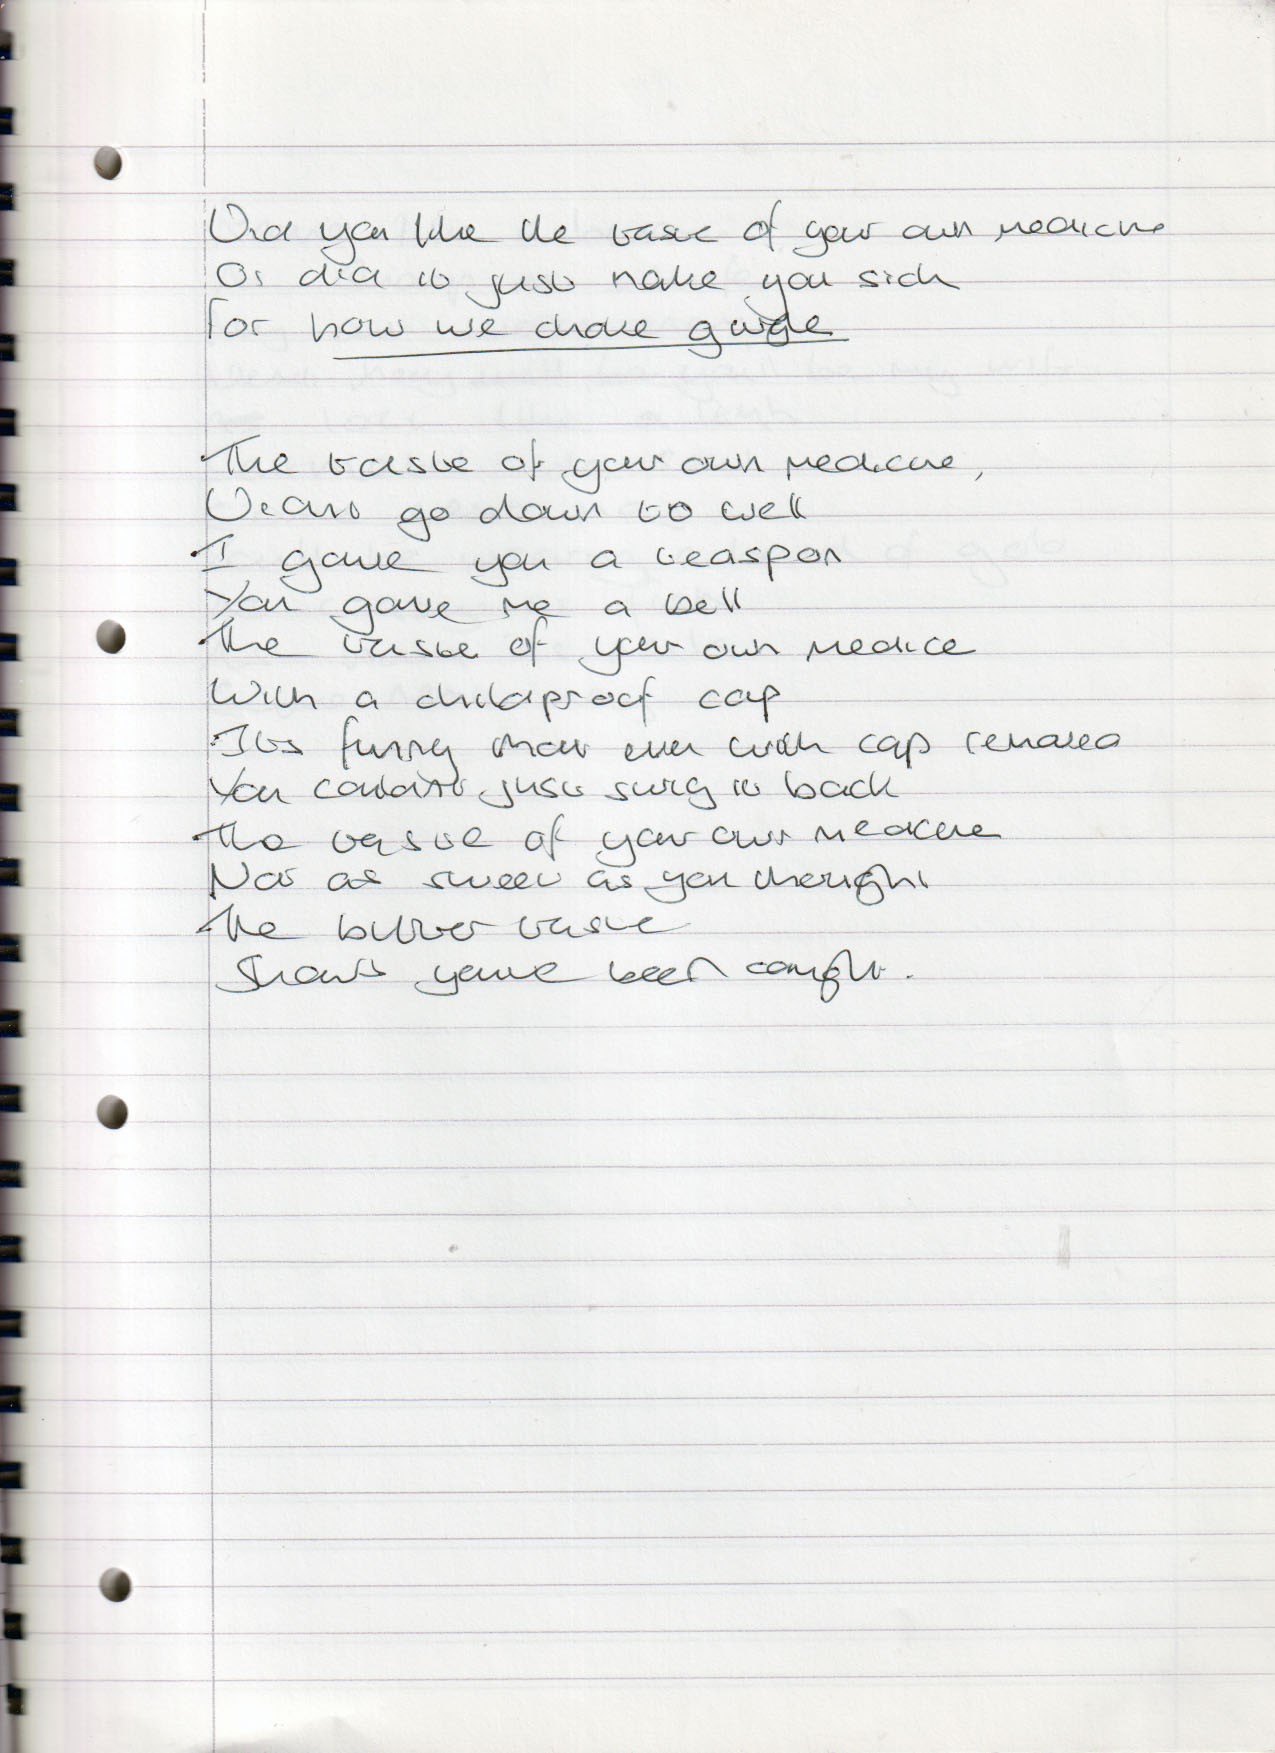 Did you like the taste of your own medicine
Or did it just make you sick
For now we
The taste of your own medicine,
Didnt go down to well
I gave you a teaspon
You gave me a bell
The taste of your own medice
With a childproof cap
Its funny how even with cap removed
You couldnt just swig it back
The taste of your own medicine
Not as sweet as you thought
The bitter taste
Shows youve been caught.